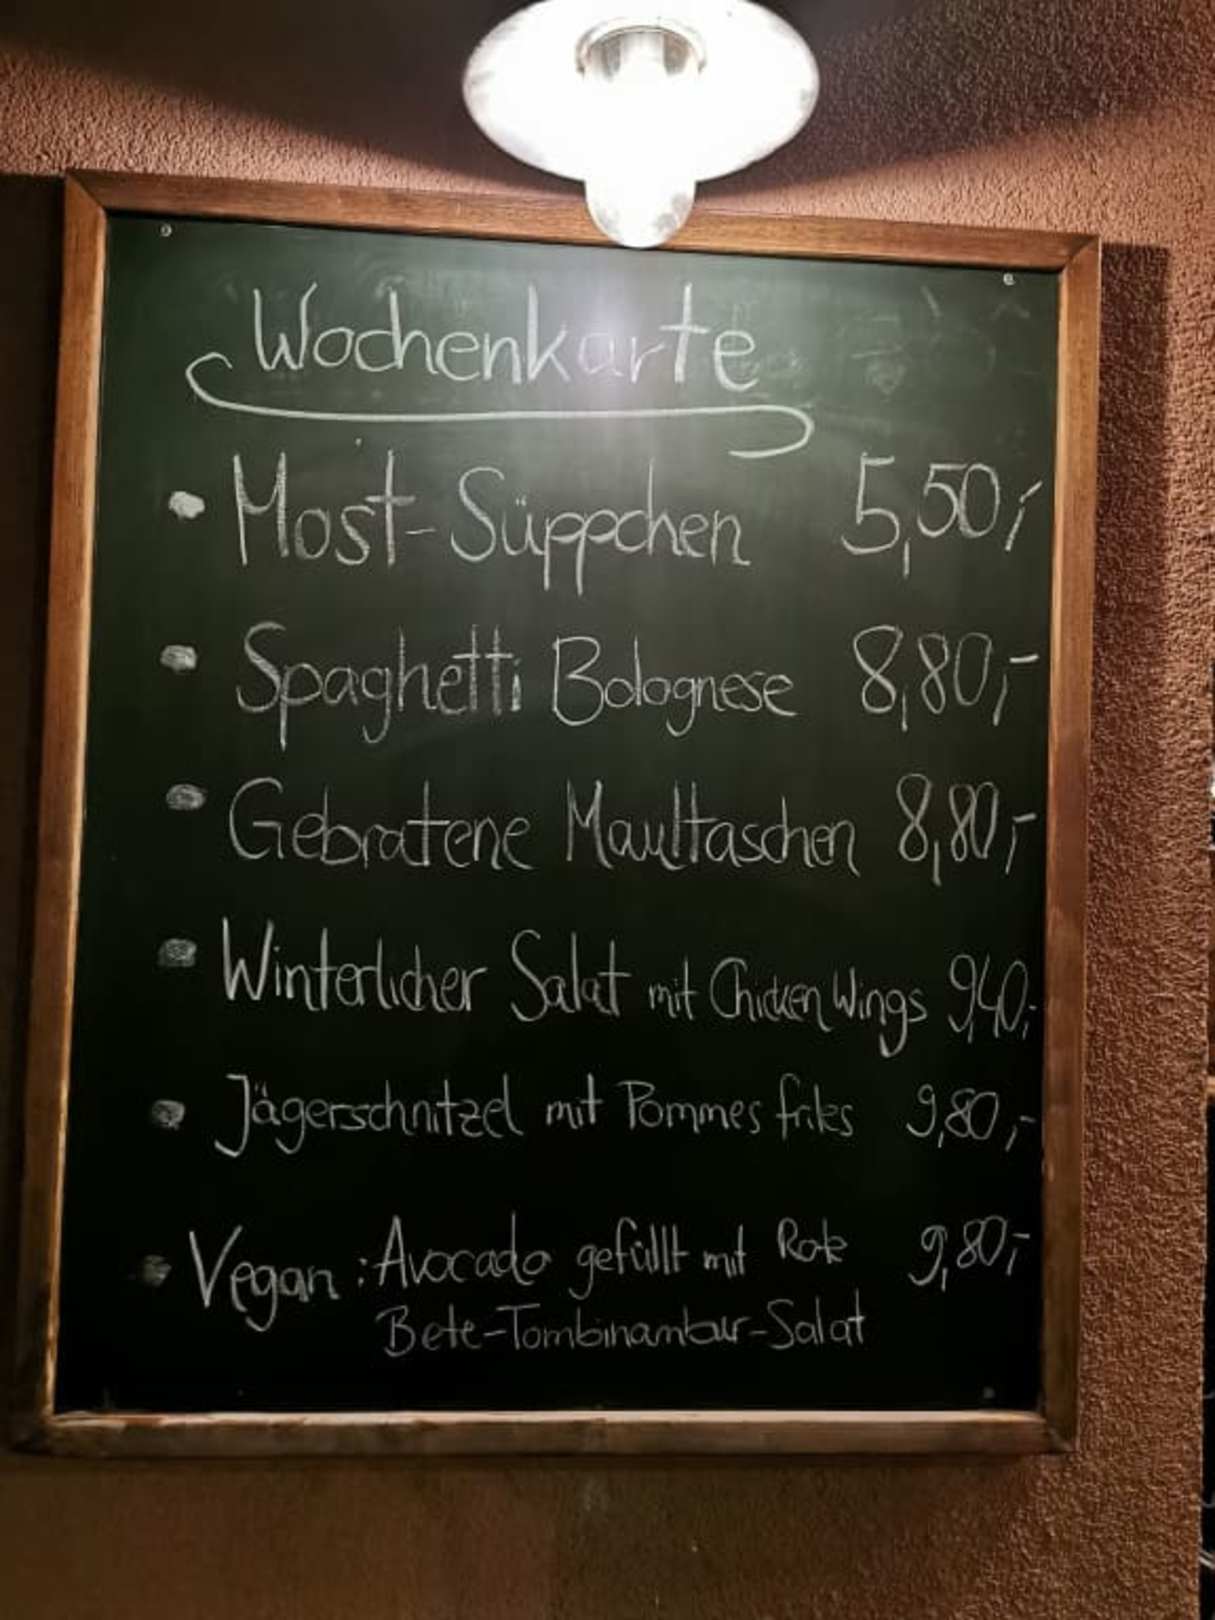 Wochenkarte
• Most-Süppchen 5,50,-
• Spaghetti Bolognese 8,80,-
• Gebratene Maultaschen 8,80,-
• Winterlicher Salat mit Chicken Wings 9,40,-
• Jägerschnitzel mit Pommes frites 9,80,-
• Vegan: Avocado gefüllt mit Rote 9,80,-
Bete-Tombinambur-Salat